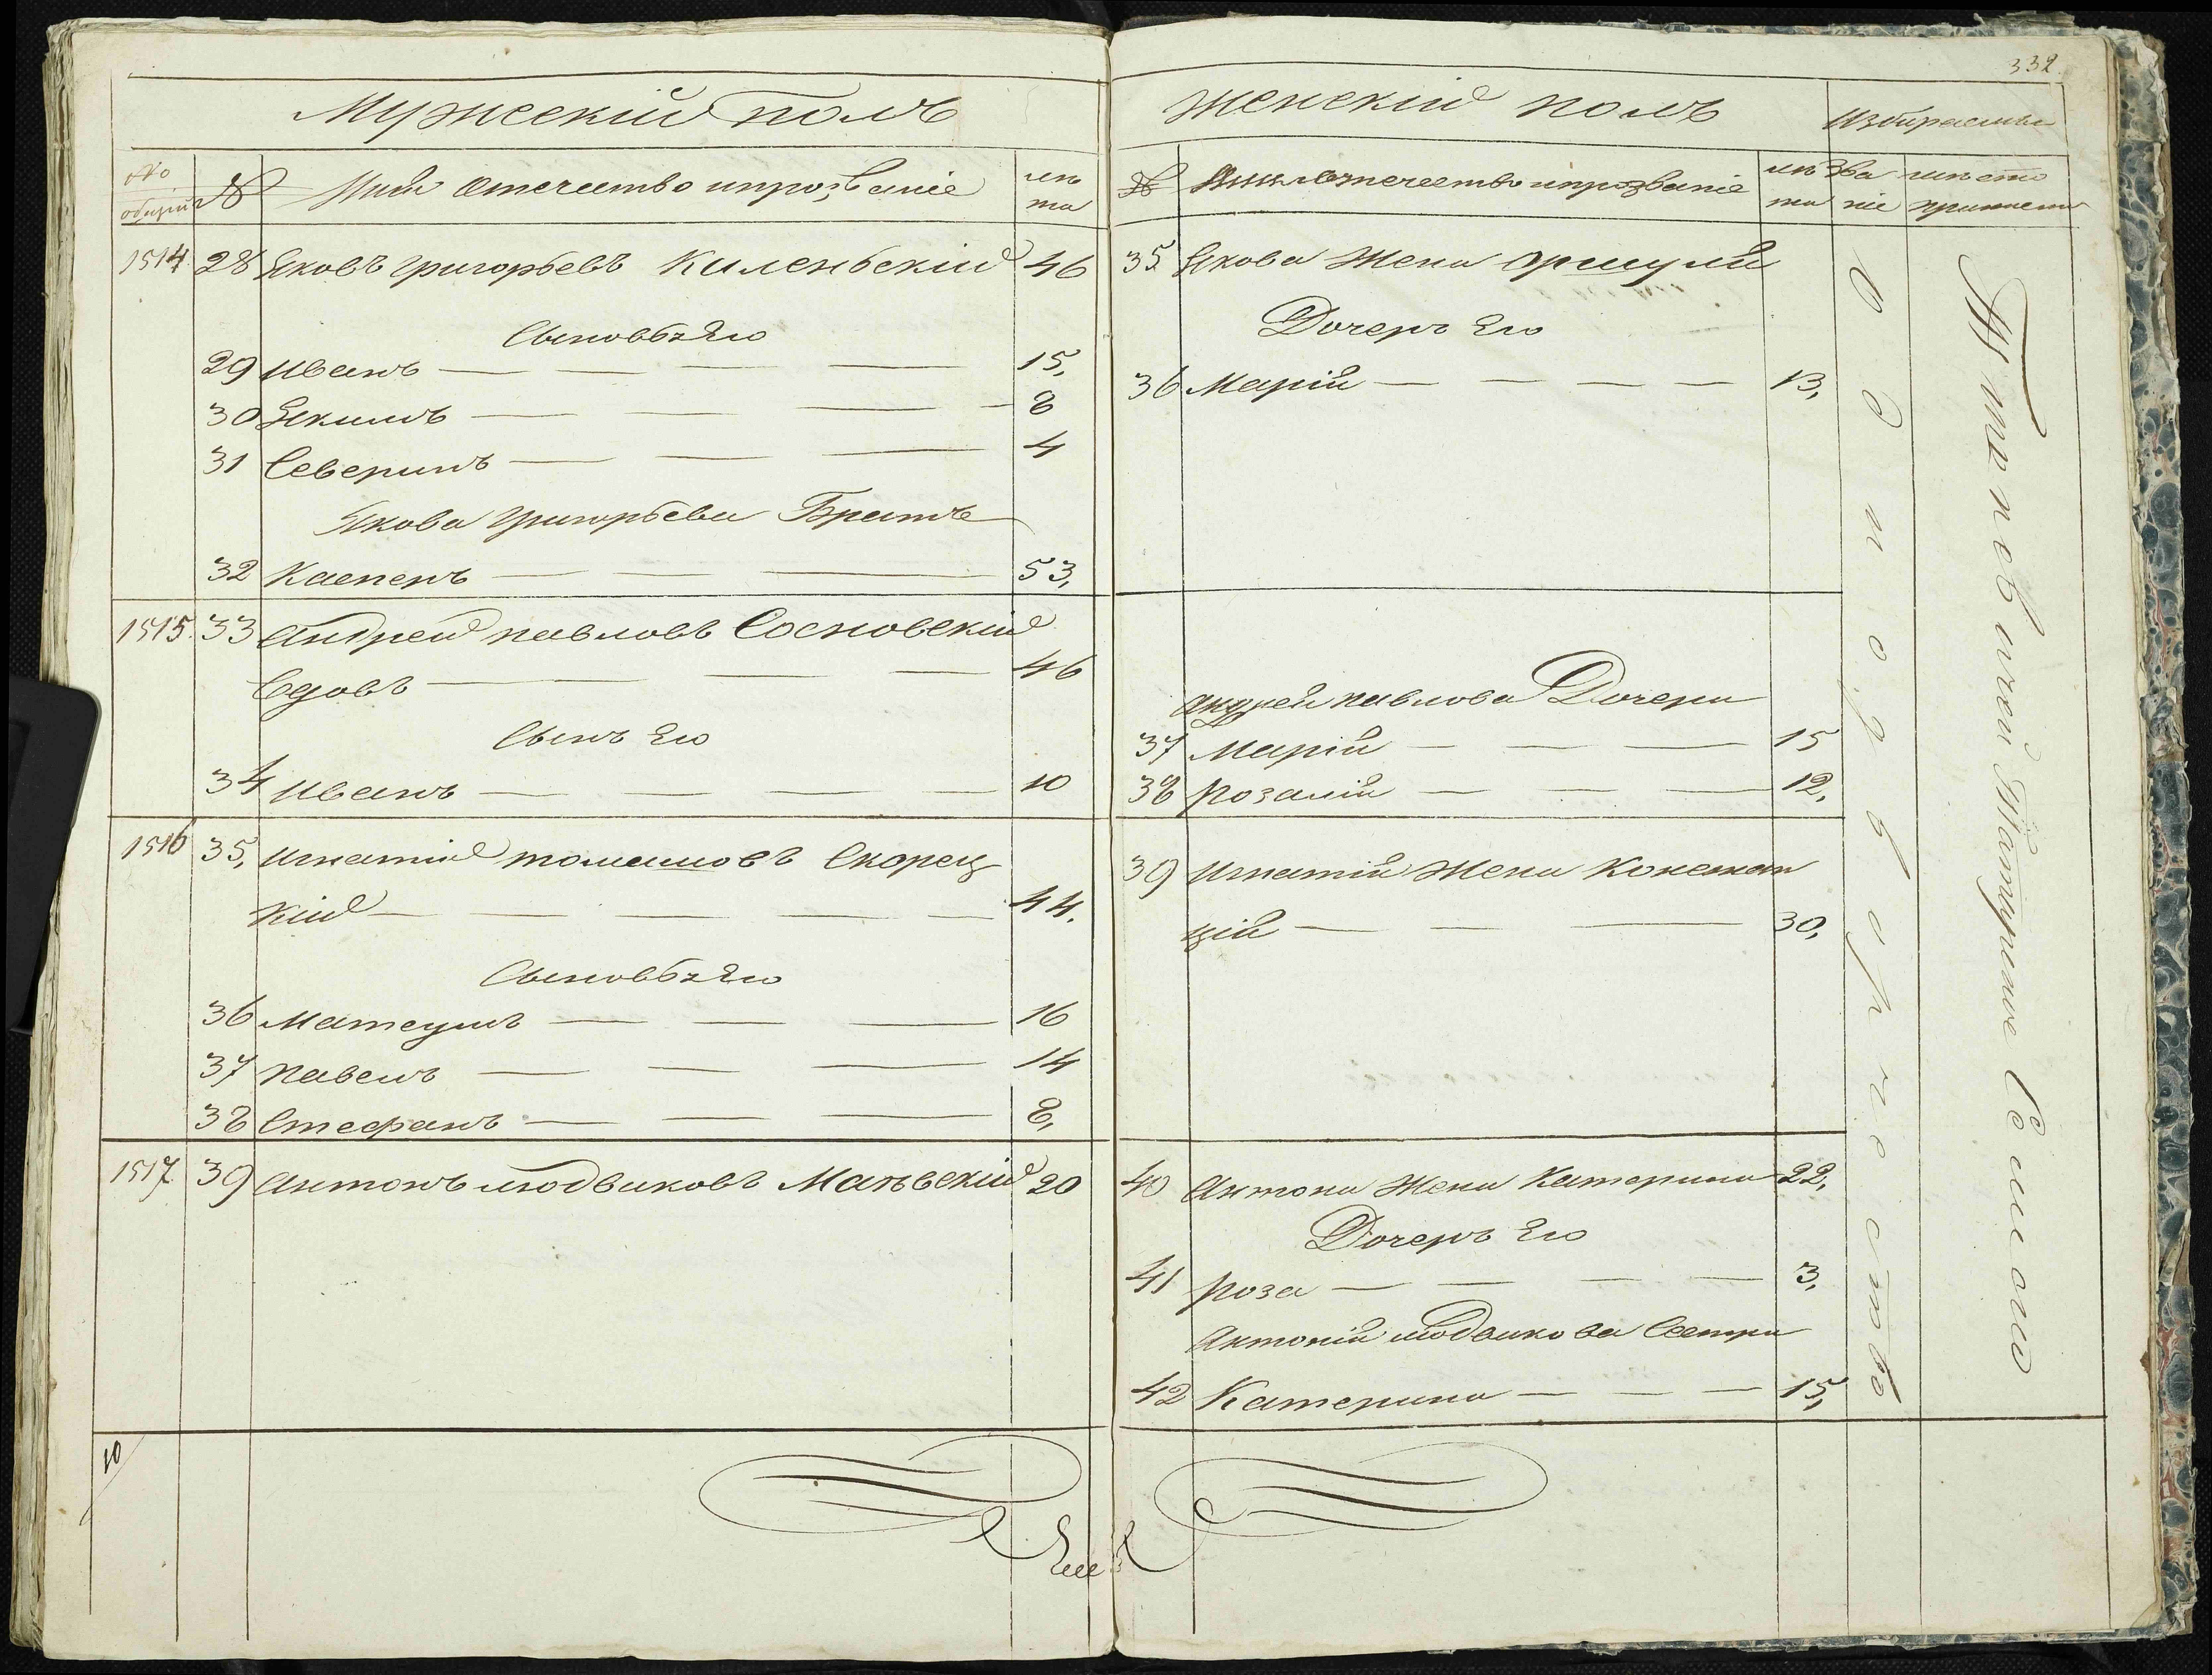 Мужескій полъ
№ общій
№
Имя Отечество и прозваніе
лѣта
1514
28 Яковъ Григорьевъ Киленьскій 46
Сыновья Его
29 Иванъ 15,
30 Якимъ 8
31 Северинъ 4
Якова Григорьева Братъ
32 Касперъ 53,
1515. 33 Андрей павловъ Сосновскій
вдовъ 46
Сынъ Его
34 Иванъ 10
1516 35, Игнатій томашовъ Скорец
кій 44.
Сыновья Его
36 Матеушъ 16
37 павелъ 14
38 Стефанъ 8,
1517. 39 Антонъ людвиковъ Маньвскій 20
10
332.
Женскій полъ
Избираемые
№
Имя отечество и прозваніе
лѣта
Званіе
мѣсто
35. Якова Жена Оршуля
Дочерь Его
36 Марія 13,
Андрея павлова Дочери
37 Марія 15
38 розалія 12,
39 Игнатія Жена Констан
ція 30,
40 Антона Жена Катерина 22,
Дочерь Его
41 роза 3,
Антонія людвикова Сестра
42 Катерина 15,
Однодворчество